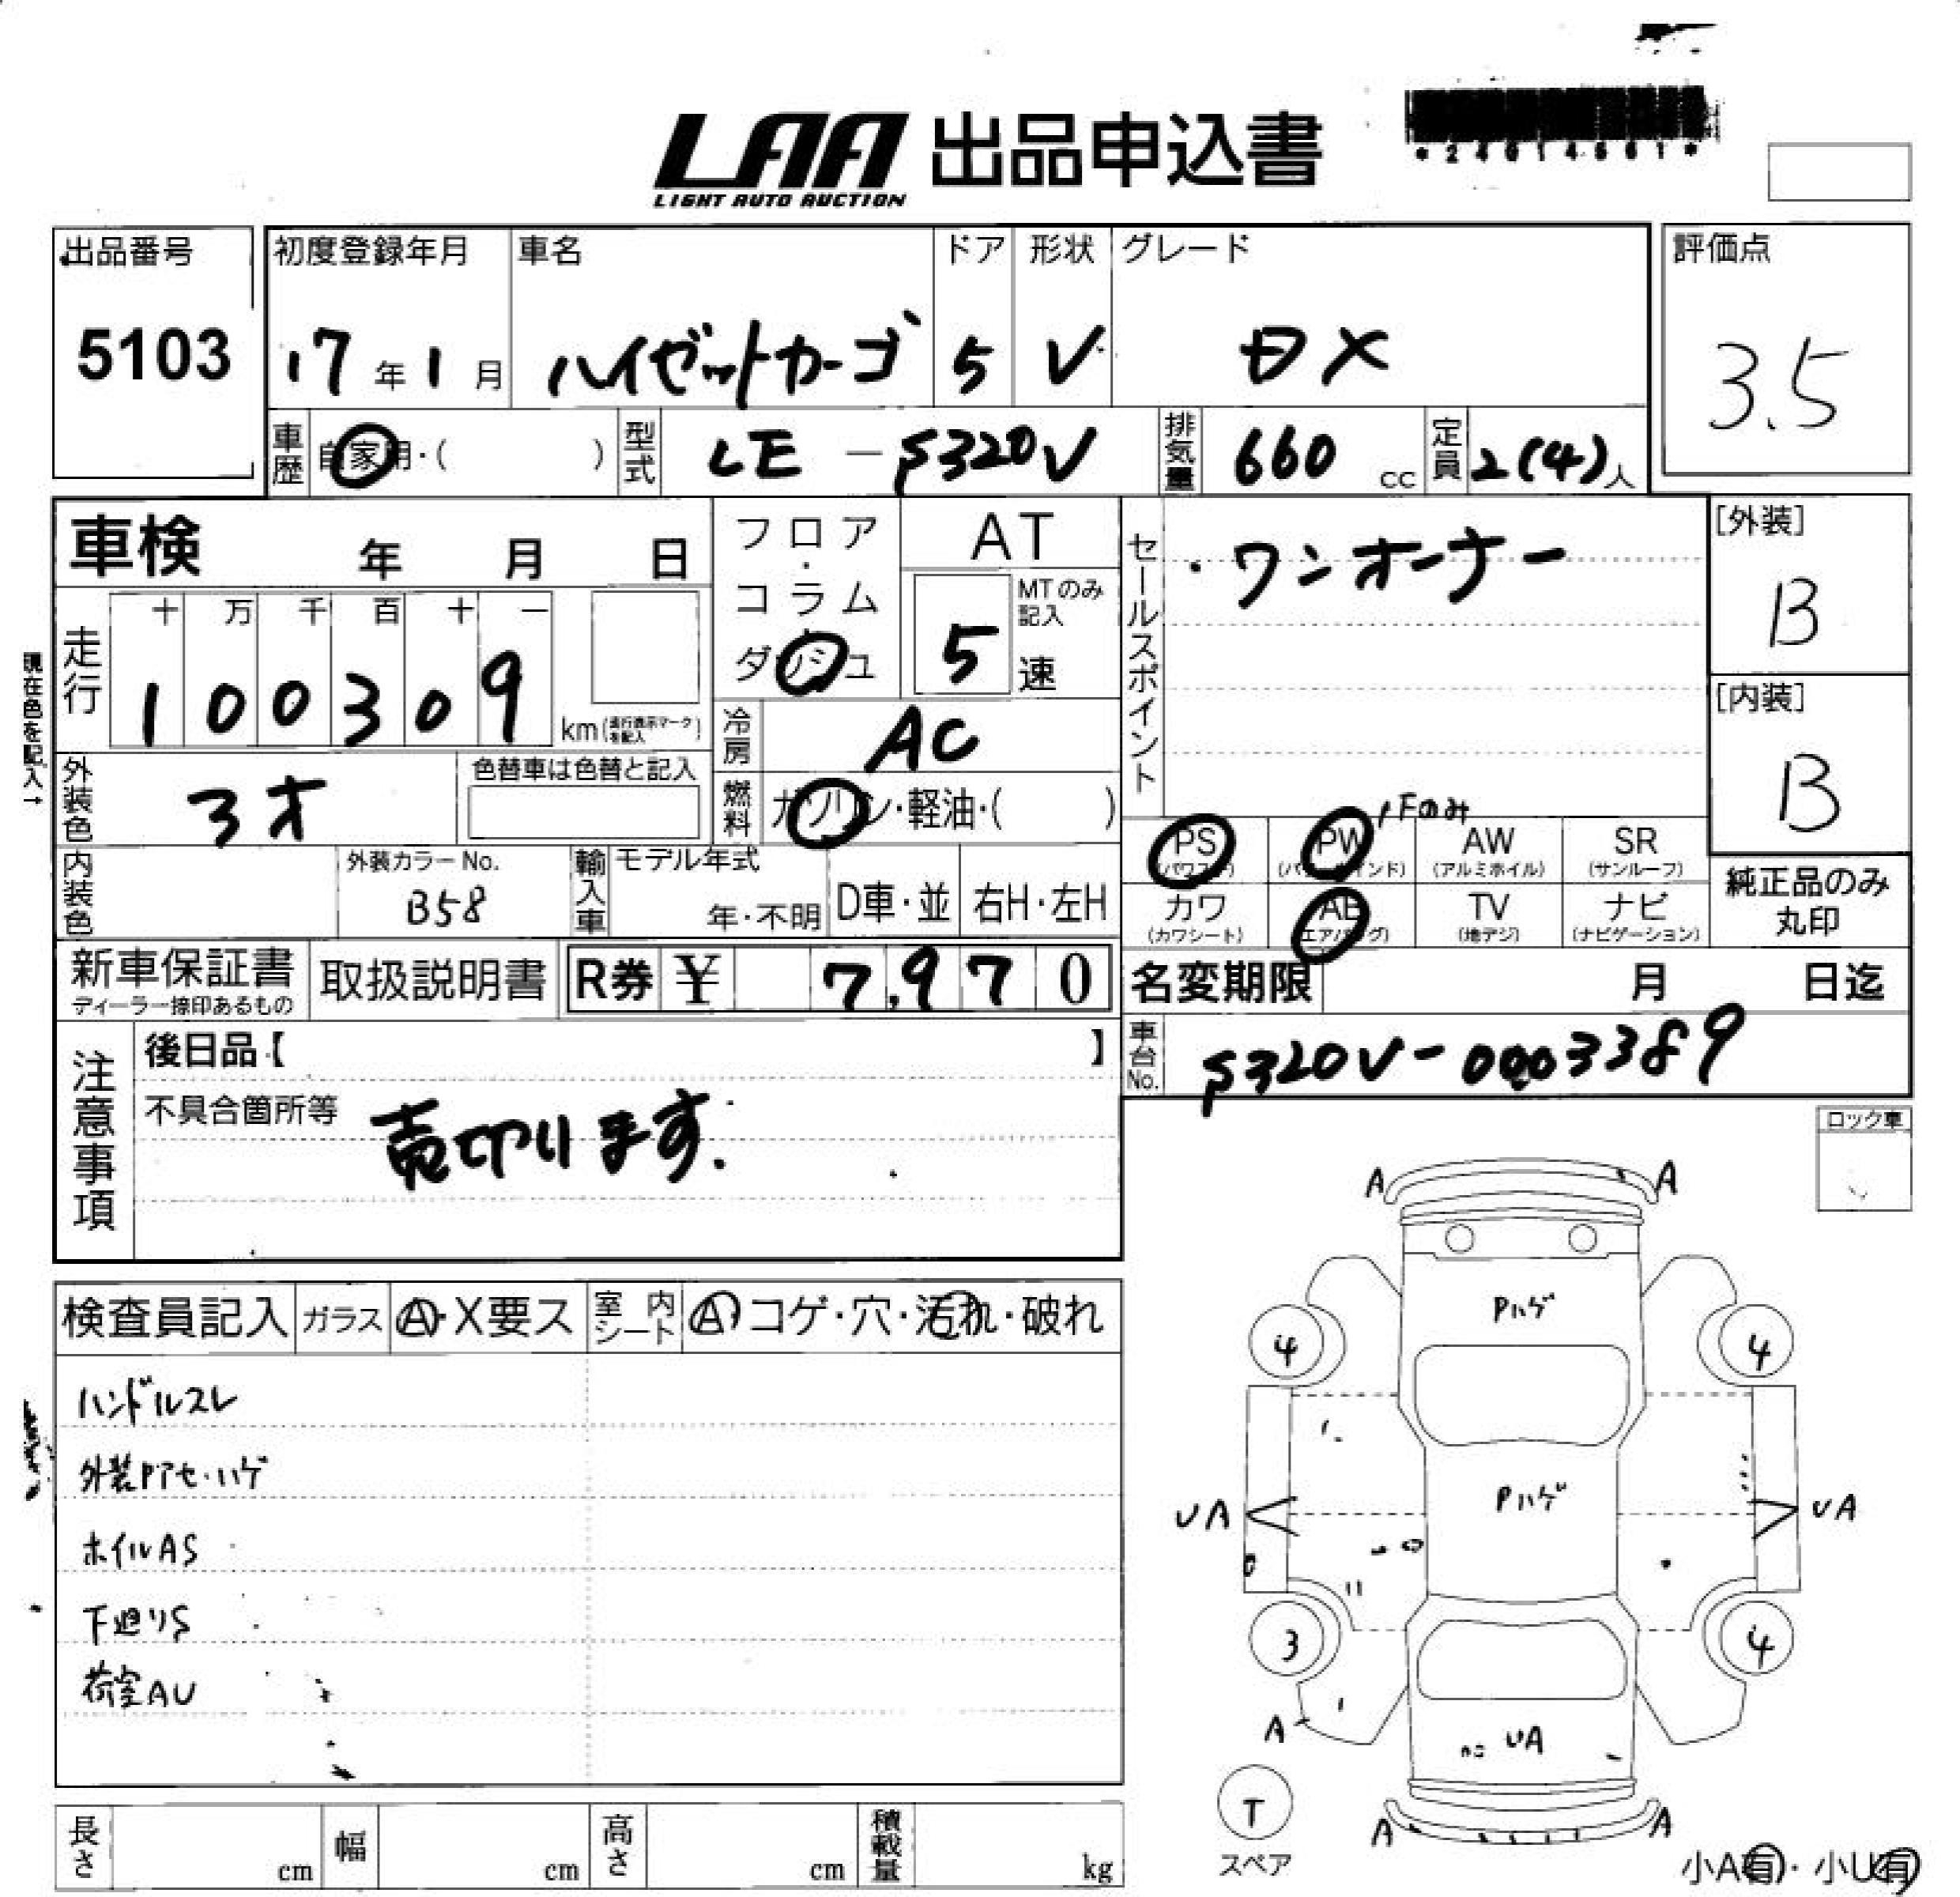 LAA 出品申込書
LIGHT AUTO AUCTION
出品番号
5103
初度登録年月
17年1月
車名
ハイゼットカーゴ
ドア
5
形状
V
グレード
DX
評価点
3.5
車歴 自家用・( )
型式 LE-S320V
排気量 660 cc
定員 2(4)人
車検 年 月 日
走行
十 万 千 百 十 一
1 0 0 3 0 9
km(走行表示マークを記入)
現在色を記入→
外装色 ヨオ
色替車は色替と記入
内装色
外装カラーNo.
B58
輸入車 モデル年式
年・不明
D車・並
右H・左H
フロア・コラム・ダッシュ
AT
MTのみ記入
5速
冷房 AC
燃料 ガソリン・軽油・( )
セールスポイント
・ワンオーナー
[外装]
B
[内装]
B
PS
(パワステ)
PW
(パワーウインド)
Fのみ
AW
(アルミホイル)
SR
(サンルーフ)
カワ
(カワシート)
AB
(エアバッグ)
TV
(地デジ)
ナビ
(ナビゲーション)
純正品のみ
丸印
新車保証書
ディーラー捺印あるもの
取扱説明書
R券 ¥ 7,970
名変期限 月 日迄
車台No. S320V-0003389
注意事項
後日品【 】
不具合箇所等
売切ります.
ロック車
検査員記入
ガラス Ⓐ・X要ス
室内シート Ⓐ コゲ・穴・汚れ・破れ
ハンドルスレ
外装Pアセ・ハゲ
ホイルAS
下廻りS
荷室AU
A A
Pハゲ
4 4
Pハゲ
UA UA
3 4
A
UA
T
スペア
A A
小A有・小U有
長さ cm
幅 cm
高さ cm
積載量 kg